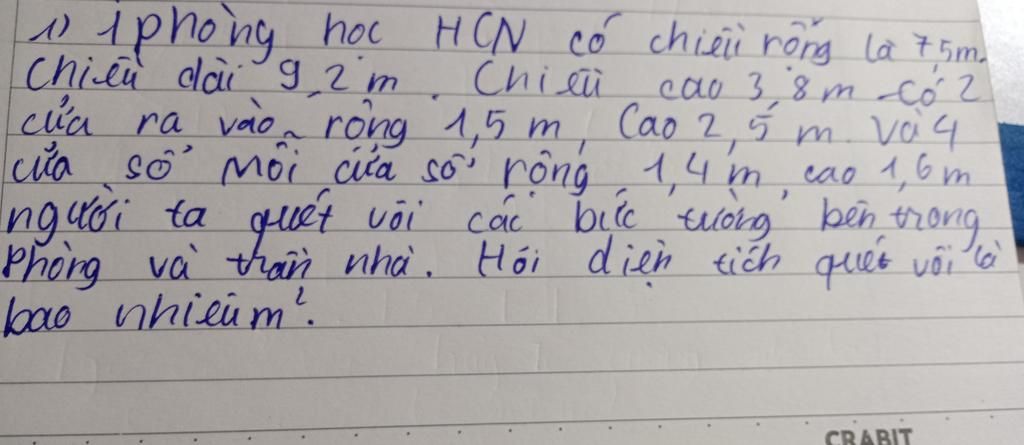 1) 1 phòng học HCN có chiều rộng là 7,5m.
Chiều dài 9,2m. Chiều cao 3,8m có 2
cửa ra vào rộng 1,5m, Cao 2,5m và 4
cửa sổ Mỗi cửa sổ rộng 1,4m, cao 1,6m
người ta quét vôi các bức tường bên trong
Phòng và trần nhà. Hỏi diện tích quét vôi là
bao nhiêu m².
CRABIT